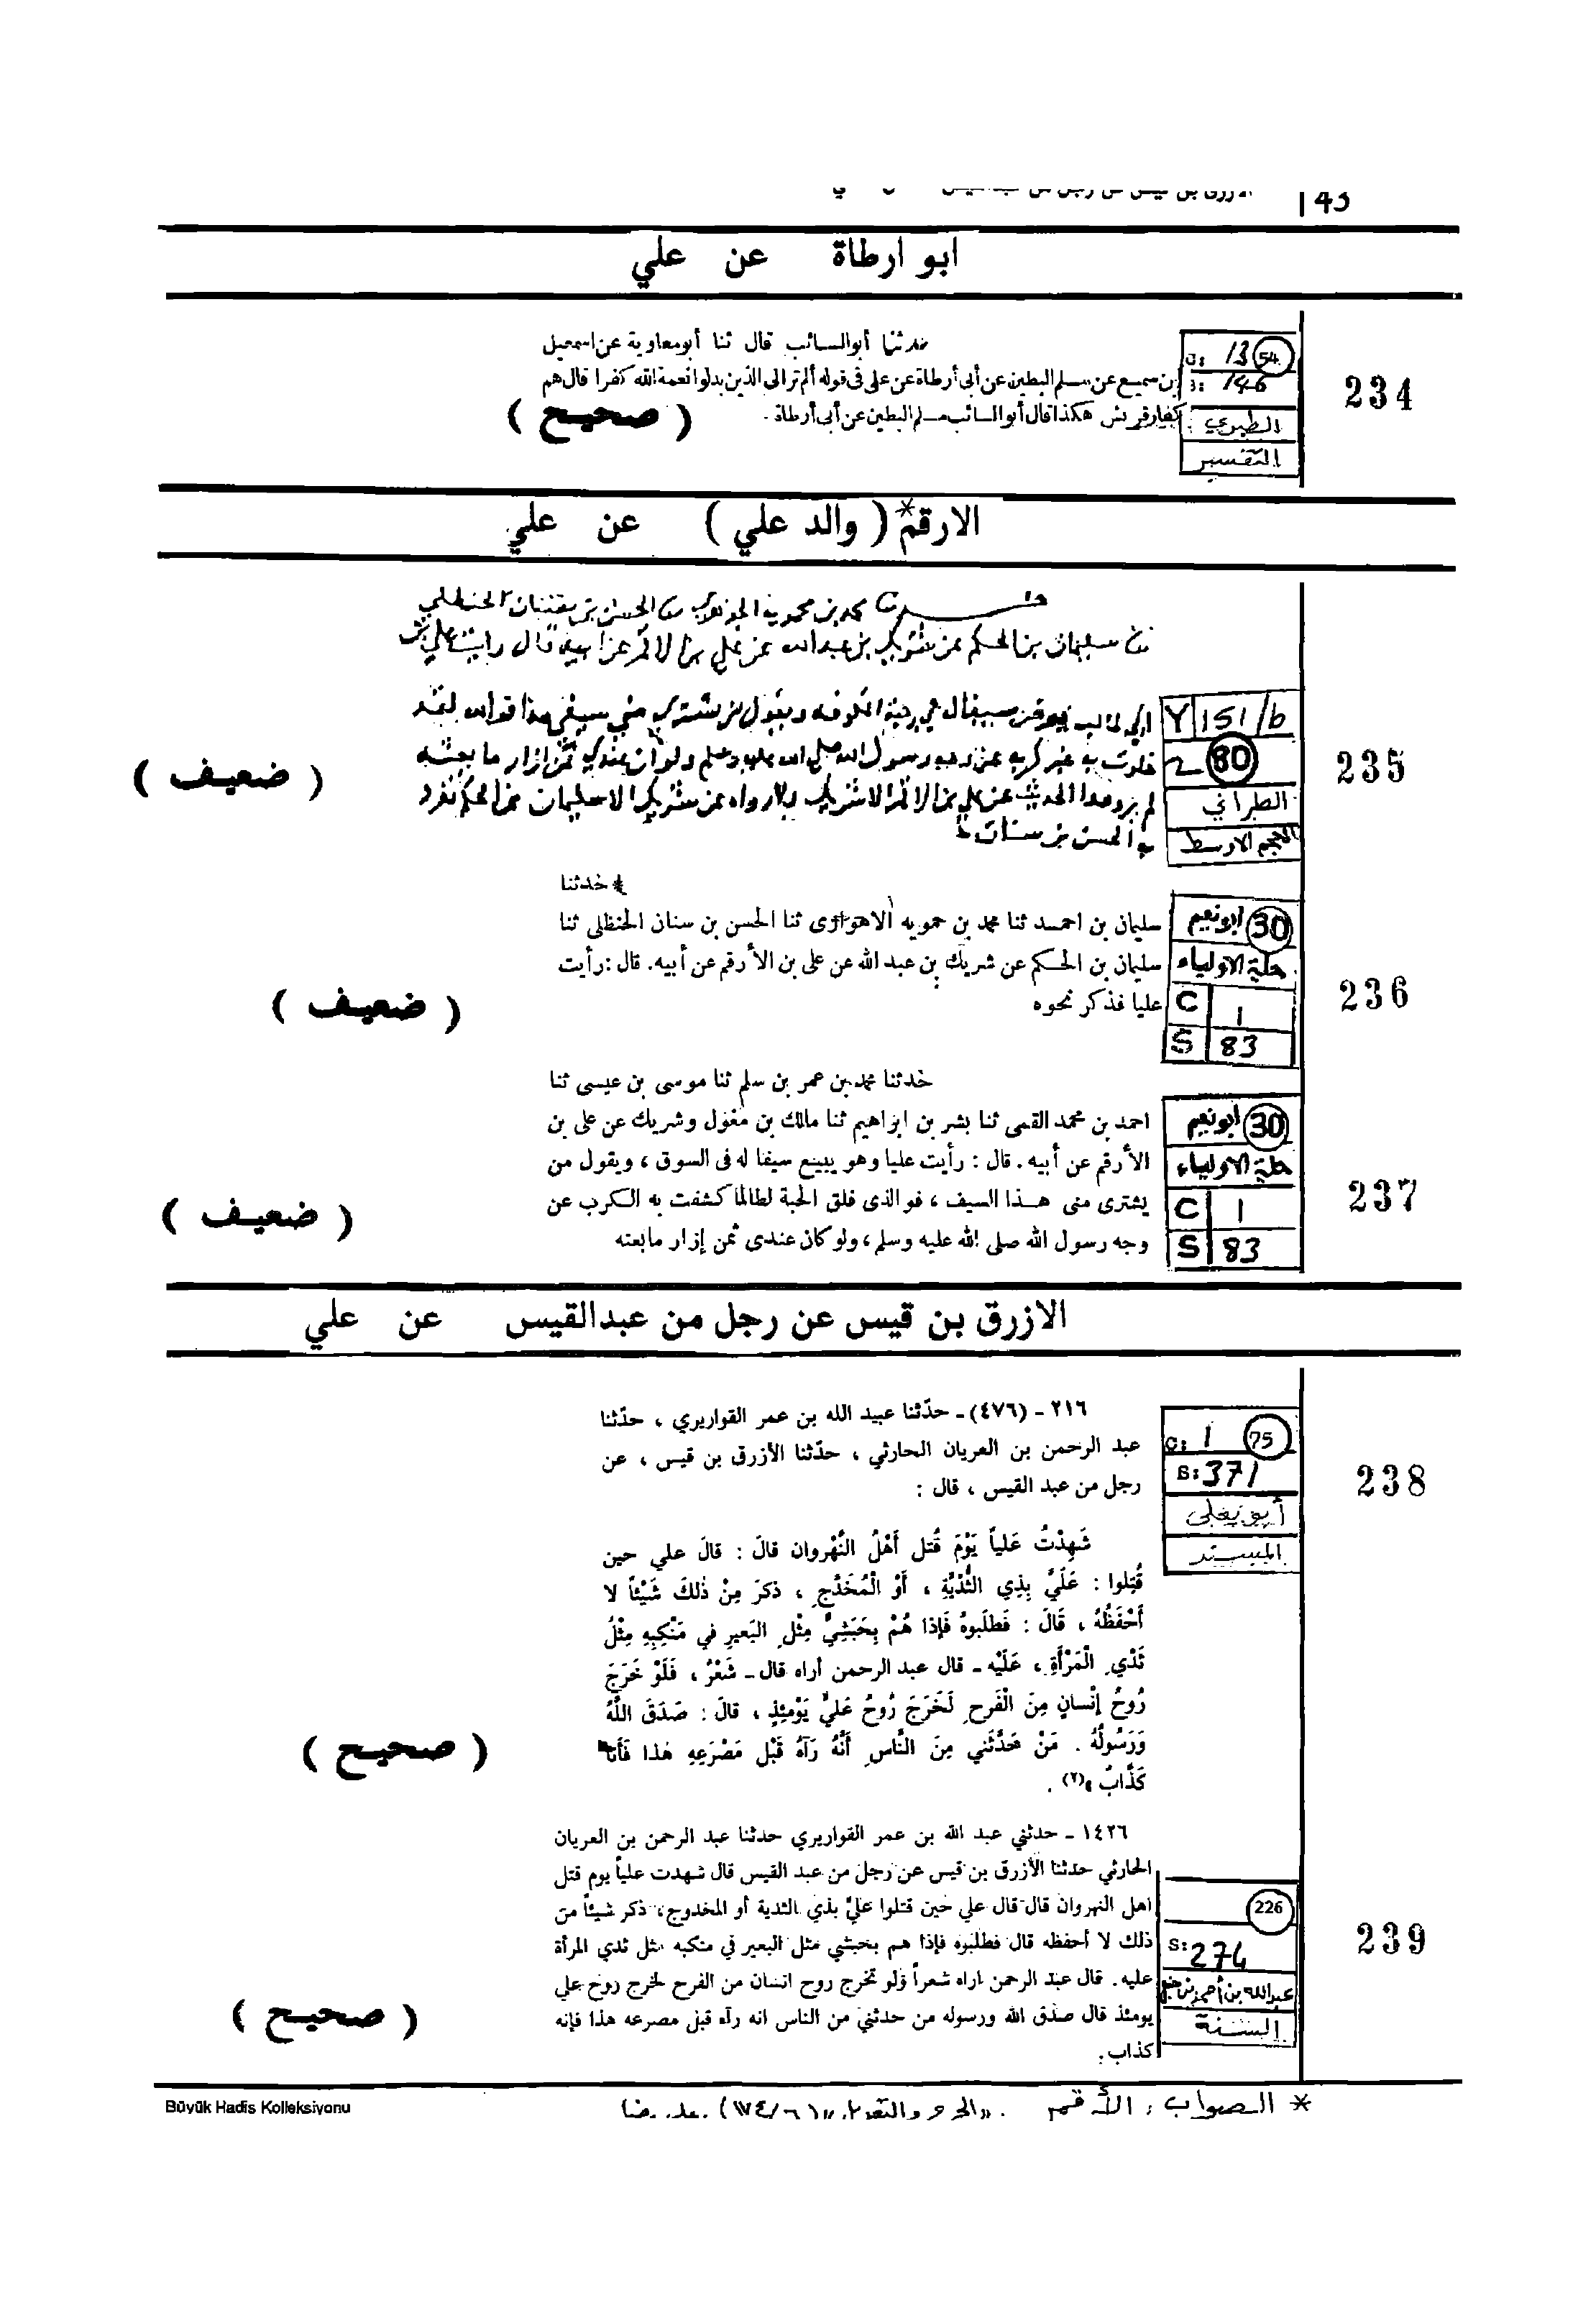 الازرق بن قيس عن رجل من عبدالقيس عن علي 43
ابو ارطاة عن علي
234
C: 13 (54)
S: 146
الطبري
التفسير
حدثنا أبو السائب قال ثنا أبو معاوية عن اسمعيل
ابن سميع عن مسلم البطين عن أبى أرطاة عن على فى قوله ألم تر الى الذين بدلوا نعمة الله كفرا قال هم
كفار قريش هكذا قال أبو السائب مسلم البطين عن أبى أرطاة .
( صحيح )
الارقم* ( والد علي ) عن علي
235
Y 151/b
2 (80)
الطبراني
المعجم الاوسط
محمد بن محموية الجوهري الحسن بن الحنظلي
سليمان بن الحكم عن شريك بن عبد الله عن علي بن الاقمر عن ابيه قال رايت علي بن
ابي طالب يعرض سيفا له في رحبة الكوفه ويقول من يشتري مني سيفي هذا فوالله لقد
به غير كربه عن وجه رسول الله صلى الله عليه وسلم ولو ان عندي ثمن ازار ما بعته
لم يرو هذا الحديث عن علي بن الاقمر الا شريك ولا رواه عن شريك الا سليمان بن الحكم تفرد
به الحسن بن سنان
( ضعيف )
236
(30) ابو نعيم
حلية الاولياء
C 1
S 83
* حدثنا
سليمان بن احمد ثنا محمد بن حمويه الاهوازى ثنا الحسن بن سنان الحنظلى ثنا
سليمان بن الحكم عن شريك بن عبد الله عن على بن الأرقم عن أبيه. قال: رأيت
عليا فذكر نحوه
( ضعيف )
237
(30) ابو نعيم
حلية الاولياء
C 1
S 83
حدثنا محمد بن عمر بن سلم ثنا موسى بن عيسى ثنا
احمد بن محمد القمى ثنا بشر بن ابراهيم ثنا مالك بن مغول وشريك عن على بن
الأرقم عن أبيه . قال : رأيت عليا وهو يبيع سيفا له فى السوق ، ويقول من
يشترى منى هذا السيف ، فوالذى فلق الحبة لطالما كشفت به الكرب عن
وجه رسول الله صلى الله عليه وسلم ، ولو كان عندى ثمن إزار ما بعته
( ضعيف )
الازرق بن قيس عن رجل من عبدالقيس عن علي
238
C: 1 (75)
S: 371
أبو يعلى
المسند
٢١٦ - (٤٧٦) - حدّثنا عبيد الله بن عمر القواريري ، حدّثنا
عبد الرحمن بن العريان الحارثي ، حدّثنا الأزرق بن قيس ، عن
رجل من عبد القيس ، قال :
شَهِدْتُ عَلياً يَوْمَ قُتل أَهْلُ النَّهْروان قالَ : قالَ علي حين
قُتِلوا : عَلَيَّ بِذِي الثُّدَيَّةِ ، أَوْ الْمُخَدَّجِ ، ذكرَ مِنْ ذٰلكَ شَيْئاً لا
أَحْفَظُهُ ، قَالَ : فَطَلَبوهُ فَإذا هُمْ بِحَبَشِيٍّ مِثْلِ البَعيرِ في مَنْكِبِهِ مِثْلُ
ثَدْيِ الْمَرْأَةِ ، عَلَيْه - قال عبد الرحمن أراه قال - شَعْرٌ ، فَلَوْ خَرَجَ
رُوحُ إنْسانٍ مِنَ الْفَرحِ لَخَرَجَ رُوحُ عَليٍّ يَوْمئِذٍ ، قالَ : صَدَقَ اللَّهُ
وَرَسُولُهُ . مَنْ حَدَّثَني مِنَ النَّاسِ أَنَّهُ رَآهُ قَبْل مَصْرَعِهِ هٰذا فَأنا
كَذَّابٌ »(٢) .
( صحيح )
239
(226)
S: 274
عبدالله بن أحمد بن حنبل
السنة
١٤٢٦ - حدثني عبد الله بن عمر القواريري حدثنا عبد الرحمن بن العريان
الحارثي حدثنا الأزرق بن قيس عن رجل من عبد القيس قال شهدت علياً يوم قتل
اهل النهروان قال قال علي حين قتلوا عليّ بذي الثدية أو المخدوج، ذكر شيئاً من
ذلك لا أحفظه قال فطلبوه فإذا هم بحبشي مثل البعير في منكبه مثل ثدي المرأة
عليه. قال عبد الرحمن اراه شعراً ولو تخرج روح انسان من الفرح لخرج روح علي
يومئذ قال صدق الله ورسوله من حدثني من الناس انه رآه قبل مصرعه هذا فإنه
كذاب.
( صحيح )
* الصواب : الأقمر . «الجرح والتعديل» (٦/ ١٧٤) .
Büyük Hadis Kolleksiyonu